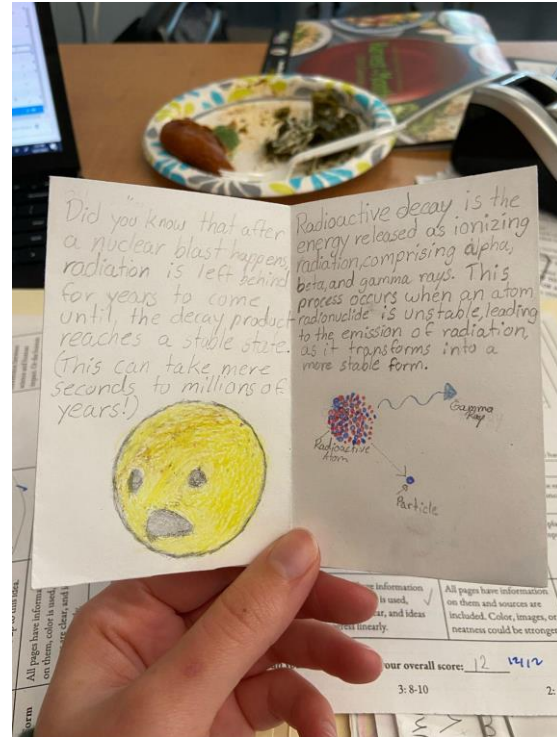 Did you know that after
a nuclear blast happens,
radiation is left behind
for years to come
until, the decay product
reaches a stable state.
(This can take mere
seconds to millions of
years!)
Radioactive decay is the
energy released as ionizing
radiation, comprising alpha,
beta, and gamma rays. This
process occurs when an atom
radionuclide is unstable, leading
to the emission of radiation,
as it transforms into a
more stable form.
Gamma
Ray
Radioactive
Atom
Particle
to this idea.
All pages have informa
on them, color is used,
are clear, and i
orm
information
is used,
ar, and ideas
ess linearly.
All pages have information
on them and sources are
included. Color, images, or
neatness could be stronger
our overall score: 12 12/12
3: 8-10
2: